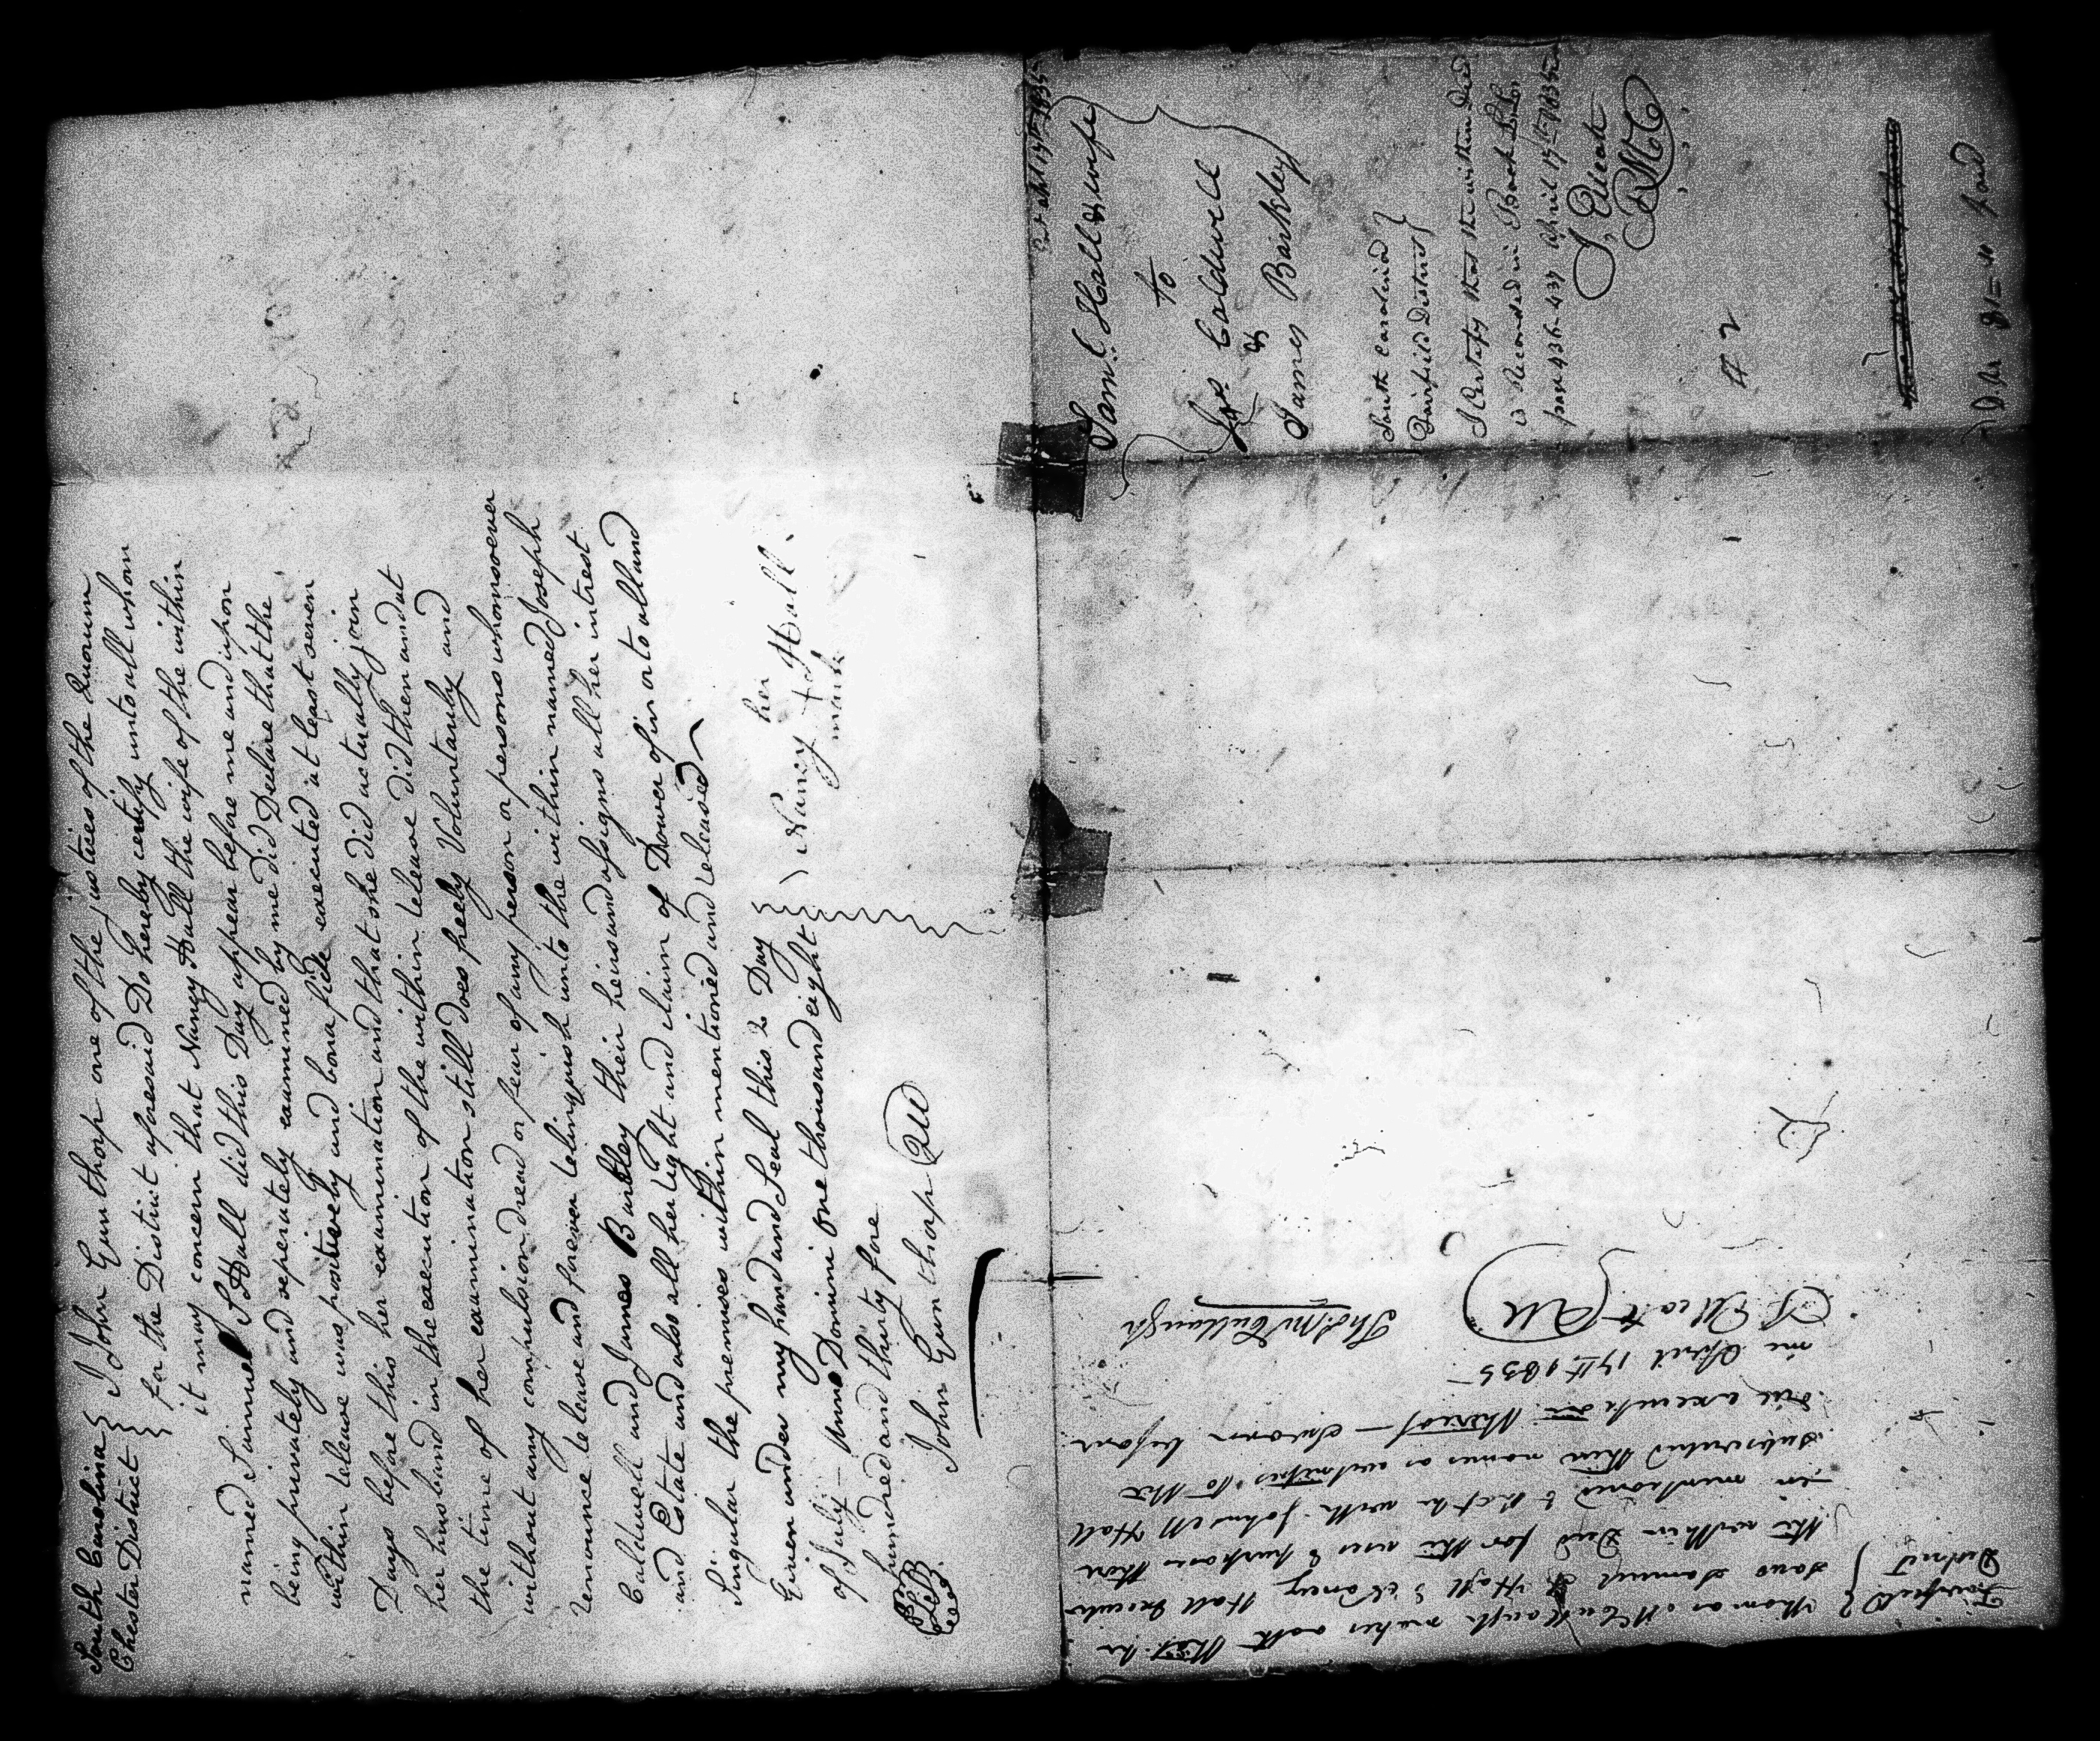 South Carolina } I John Gunthorp one of the justices of the Quorum
Chester District } for the District aforesaid Do hereby certify unto all whom
it may concern that Nancy Hall the wife of the within
named Samuel S Hall did this Day appear before me and upon
being privately and seperately examined by me did Declare that the
within release was positively and bona fide executed at least seven
Days before this her examination and that she did actually join
her husband in the execution of the within release did then and at
the time of her examination still does freely Voluntarily and
without any compulsion dread or fear of any person or persons whomsoever
renounce release and forever relinquish unto the within named Joseph
Caldwell and James Barkley their heirs and assigns all her intrest
and Estate and also all her right and claim of Dower of in or to all and
Singular the premises within mentioned and released
Given under my hand and Seal this 2 Day
of July – Anno Domini one thousand eight
hundred and thirty fore
her
Nancy + Hall
mark
John Gunthorp QU
Sam. C. Hall & wife
to
Jos. Caldwell
&
James Barkley
South Carolina }
Fairfield District }
I Certify that the within Deed
is Recorded in Book
page 436–437 April 17th 1835
RMC
# 2
paid
Fairfield }
District }
Thomas McCullough makes oath that he
saw Samuel Hall & Nancy Hall execute
the within Deed for the uses & purposes there
in mentioned & that he with John M Hall
subscribed their names as witnesses to the
due execution thereof – Sworn before
me April 17th 1835
Thos. McCullough